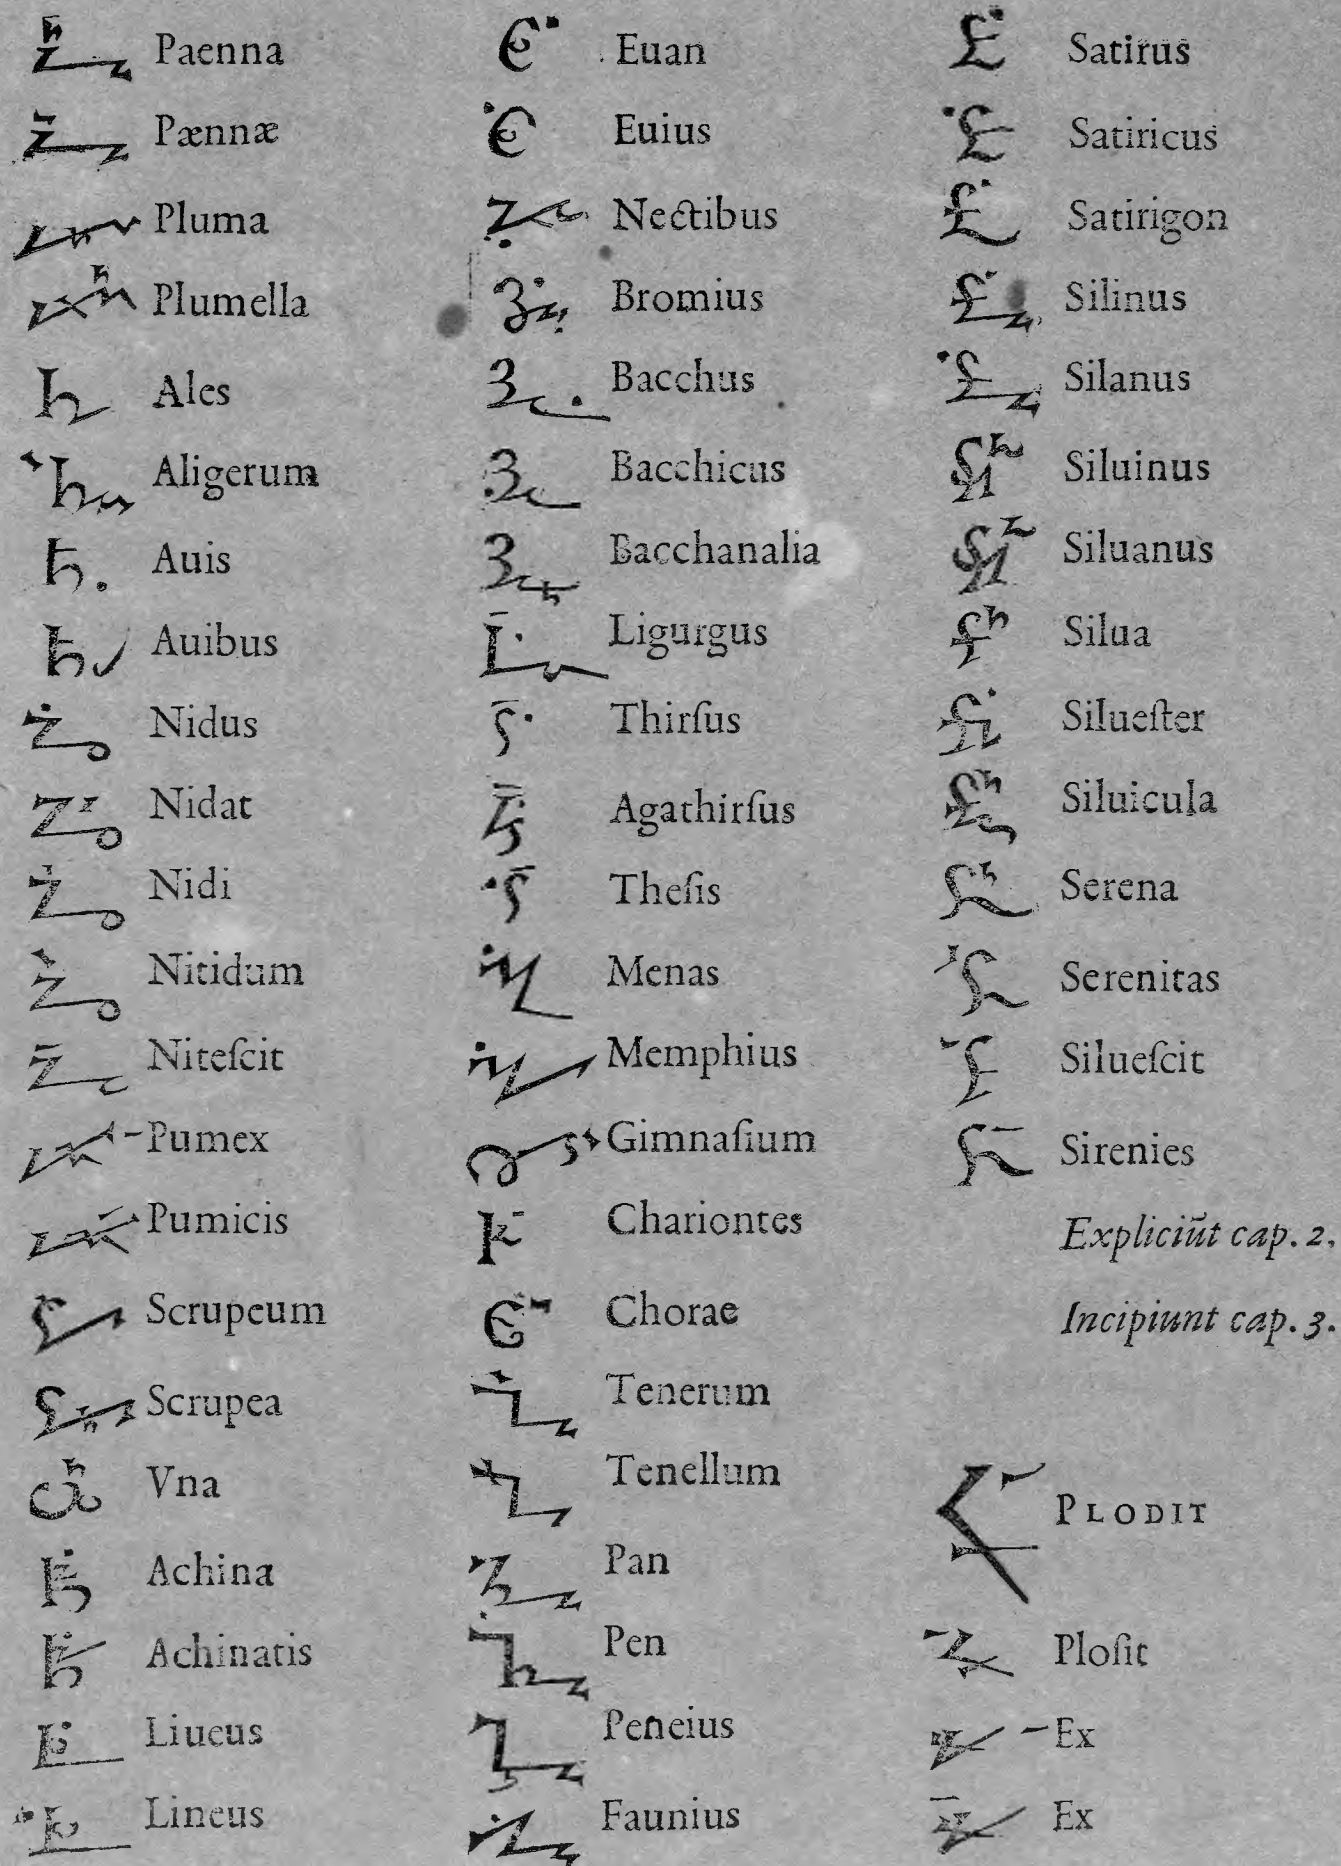 Paenna
Pænnæ
Pluma
Plumella
Ales
Aligerum
Auis
Auibus
Nidus
Nidat
Nidi
Nitidum
Niteſcit
Pumex
Pumicis
Scrupeum
Scrupea
Vna
Achina
Achinatis
Liueus
Lineus
Euan
Euius
Nectibus
Bromius
Bacchus
Bacchicus
Bacchanalia
Ligurgus
Thirſus
Agathirſus
Theſis
Menas
Memphius
Gimnaſium
Chariontes
Chorae
Tenerum
Tenellum
Pan
Pen
Peneius
Faunius
Satirus
Satiricus
Satirigon
Silinus
Silanus
Siluinus
Siluanus
Silua
Silueſter
Siluicula
Serena
Serenitas
Silueſcit
Sirenies
Expliciūt cap. 2.
Incipiunt cap. 3.
PLODIT
Ploſit
Ex
Ex